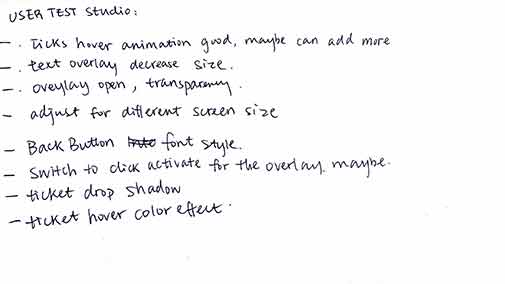 USER TEST Studio:
- . Ticks hover animation good, maybe can add more
- . text overlay decrease size.
- . oveylay open, transparency.
- adjust for different screen size
- Back Button into font style.
- Switch to click activate for the overlay. maybe.
- ticket drop shadow
- ticket hover color effect.